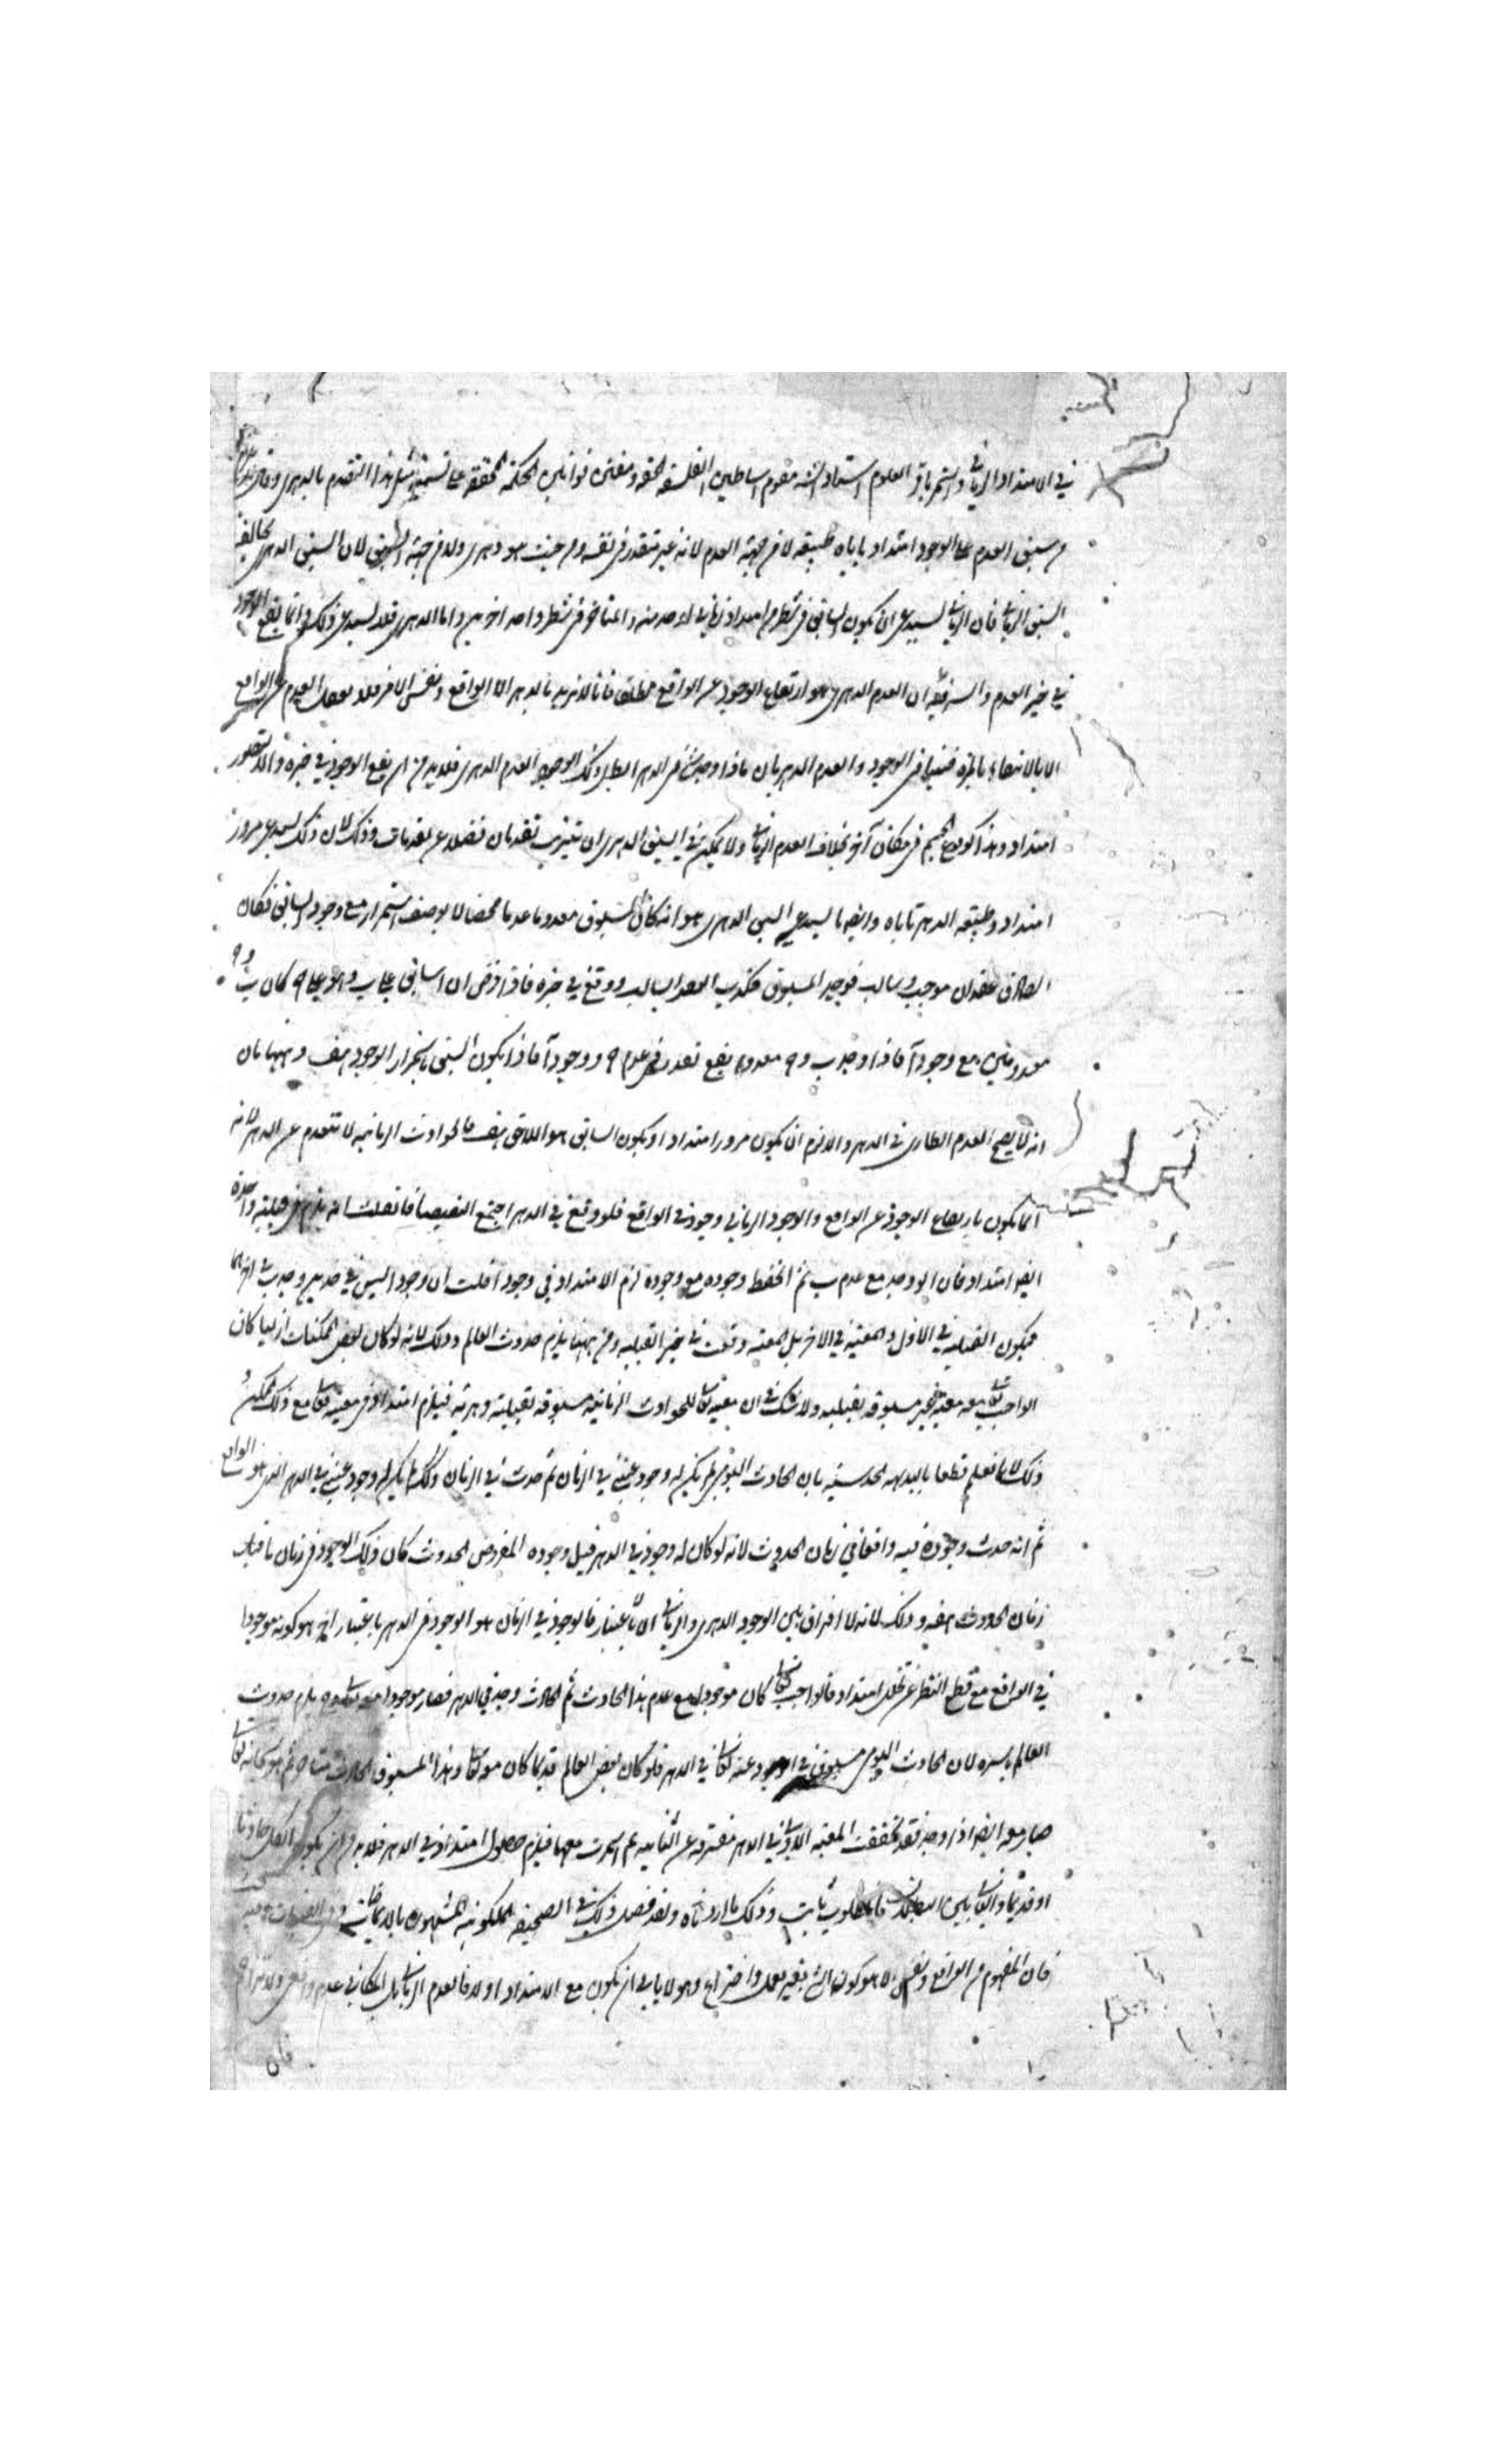 في الامتداد الزماني واستمر باقر العلوم استاد البشر مقوم اساطين الفلسفة الحقة ومقنن قوانين الحكمة المحققة على تسمية مثل هذا التقدم بالدهري وقال
من سبق العدم على الوجود امتداد ياباه طبيعة لا من جهة العدم لانه غير متقدر في نفسه ومن حيث هو دهري ولا من جهة السبق لان السبق الدهري يخالف
السبق الزماني فان الزماني يستدعي ان يكون السابق في شطر من امتداد زماني او حد منه والمتاخر في شطر او حد اخر منه واما الدهري فلا يستدعي ذلك وانما يقع الوجود
في حيز العدم والسر فيه ان العدم الدهري هو ارتفاع الوجود عن الواقع مطلقا فانا لا نريد بالدهر الا الواقع ونفس الامر فلا يعقل العدم عن الواقع
الا بالانتفاء بالمرة فيتنافى الوجود والعدم الدهريان فاذا وجد شيء في الدهر ابطل ذلك الوجود العدم الدهري فلا بد من ان يقع الوجود في حيزه والا لتصور
امتداد وهذا كوقوع جسم في مكان آخر بخلاف العدم الزماني ولا يمكن في السبق الدهري ان يترتب تقدمان فضلا عن تقدمات وذلك لان ذلك يستدعي مرور
امتداد وطبيعة الدهر تاباه وايضا ما يستدعي السبق الدهري هو انه كان المسبوق معدوما عدما محضا لا بوصف استمرار مع وجود السابق فكان
الصادق عقدان موجب وسالب فوجد المسبوق فكذب العقد السالب ووقع في حيزه فاذا فرض ان ا سابق على ب وهو على ج كان ب و ج
معدومين مع وجود آ فاذا وجد ب و ج معدوم يقع تعدد في عدم ج ووجود آ فاذا يكون السبق باستمرار الوجود هف وههنا بان
انه لا يصح العدم الطاري في الدهر والا لزم ان يكون مرور امتداد او يكون السابق هو اللاحق هف فالحوادث الزمانية لا تنعدم عن الدهر لانه
انما يكون بارتفاع الوجود عن الواقع والوجود الزماني وجود في الواقع فلو وقع في الدهر اجتمع النقيضان فان قلت انه يلزم في قبلية واحدة
ايضا امتداد فان ا لو وجد مع عدم ب ثم انحفظ وجوده مع وجوده لزم الامتداد في وجود ا قلت ان وجود ا ليس في حد وجد ب في اخر انما
فيكون القبلية في الاول والمعية في الاخر بل المعية وقعت في حيز القبلية ومن ههنا يلزم حدوث العالم وذلك لانه لو كان بعض الممكنات ازليا كان
الواجب تعالى معه معية غير مسبوقة بقبلية ولا شك في ان معيته تعالى للحوادث الزمانية مسبوقة بقبلية دهرية فيلزم امتداد في معيته تعالى مع ذلك الممكن و
ذلك لانا نعلم قطعا بالبديهة الحدسية بان الحادث اليومي لم يكن له وجود عيني في الزمان ثم حدث في الزمان وكذلك لم يكن له وجود عيني في الدهر الذي هو الواقع
ثم انه حدث وجوده فيه واقعا في زمان الحدوث لانه لو كان له وجود في الدهر قبل وجوده المفروض الحدوث كان ذلك الوجود في زمان ما قبل
زمان الحدوث هف وذلك لانه لا افتراق بين الوجود الدهري والزماني الا بالاعتبار فالوجود في الزمان هو الوجود في الدهر باعتبار اخر هو كونه موجودا
في الواقع مع قطع النظر عن تخلل امتداد فالواجب تعالى كان موجودا مع عدم هذا الحادث ثم الحادث وجد في الدهر فصار موجودا معه تعالى يلزم حدوث
العالم باسره لان الحادث اليومي مسبوق في الوجود عنه تعالى في الدهر فلو كان بعض العالم قديما كان معه تعالى وهذا المسبوق الحادث
صار معه ايضا اذا وجد فقد تحققت المعية الاولى في الدهر مفترقة عن الثانية ثم استمرت معها فيلزم حصول امتداد في الدهر فلا بد من ان يكون الكل حادثا
او قديما والثاني بين البطلان فالمطلوب ثابت وذلك ما اردناه ولقد فصل ذلك في الصحيفة الملكوتية المشهورة بالايماضات
فان المفهوم من الواقع ونفس الامر هو كون الشيء بغير تعمل واختراع وهو لا يابى ان يكون مع الامتداد او لا فالعدم الزماني بل المكاني عدم واقعي
فان